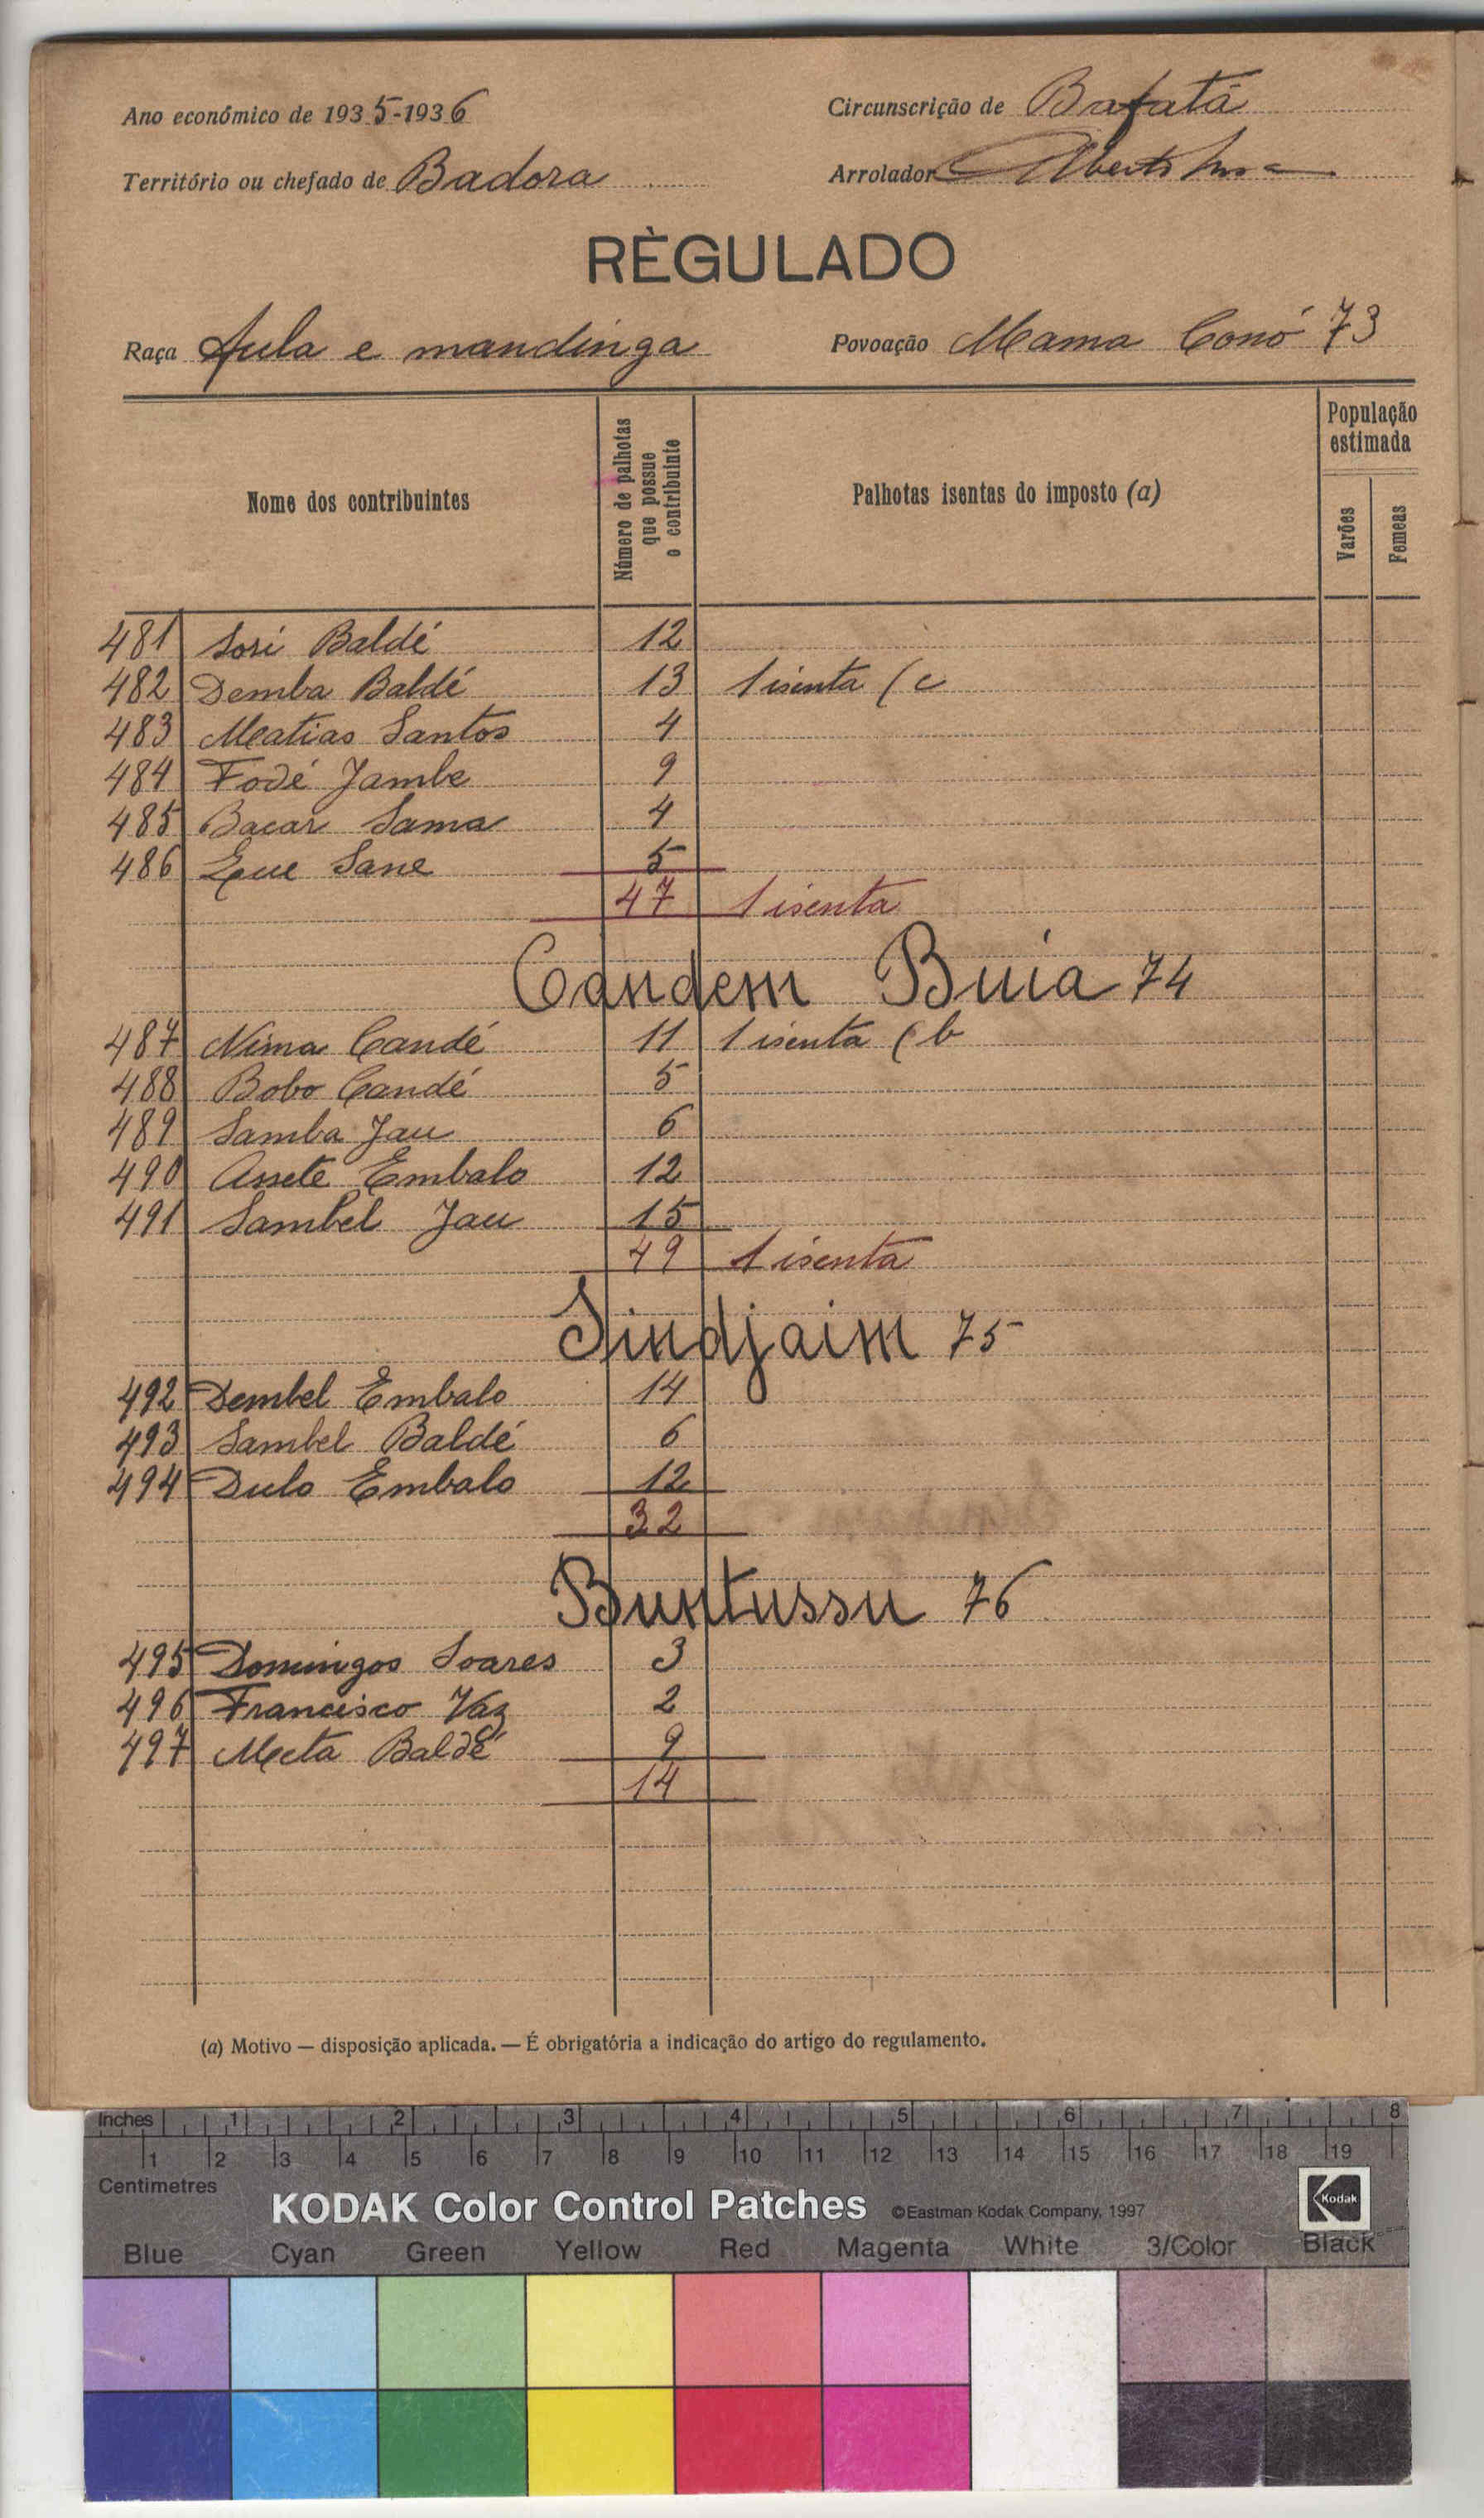 Ano económico de 1935-1936
Circunscrição de Bafatá
Território ou chefado de Badora
Arrolador Alberto
RÈGULADO
Raça Fula e mandinga
Povoação Mama Conó 73
Nome dos contribuintes
Número de palhotas que possue o contribuinte
Palhotas isentas do imposto (a)
População estimada
Varões
Femeas
481 Sori Baldé 12
482 Demba Baldé 13 1 isenta (c
483 Matias Santos 4
484 Fodé Jambe 9
485 Bacar Sama 4
486 Sane 5
47 1 isenta
Candem Buia 74
487 Nima Candé 11 1 isenta (b
488 Bobo Candé 5
489 Samba Jau 6
490 Assete Embalo 12
491 Sambel Jau 15
49 1 isenta
Sindjaim 75
492 Dembel Embalo 14
493 Sambel Baldé 6
494 Dulo Embalo 12
32
Buntussu 76
495 Domingos Soares 3
496 Francisco Vaz 2
497 Meta Baldé 9
14
(a) Motivo — disposição aplicada. — É obrigatória a indicação do artigo do regulamento.
Inches 1 2 3 4 5 6 7 8
1 2 3 4 5 6 7 8 9 10 11 12 13 14 15 16 17 18 19
Centimetres
KODAK Color Control Patches ©Eastman Kodak Company, 1997
Kodak
Blue Cyan Green Yellow Red Magenta White 3/Color Black